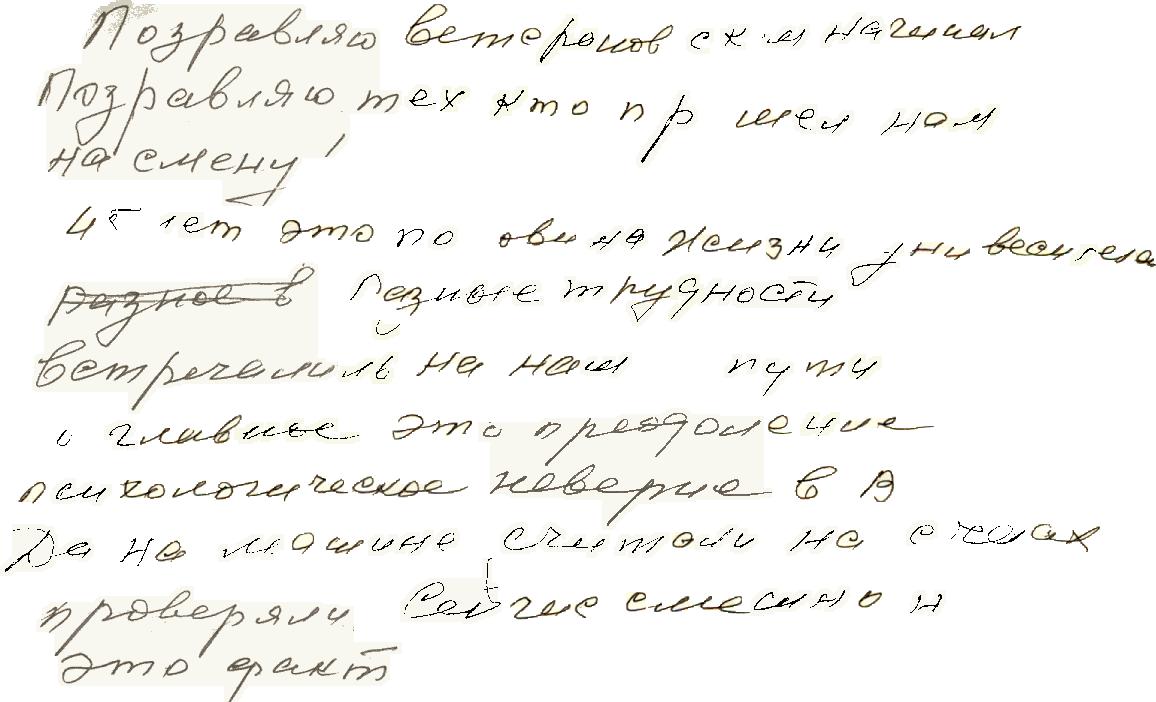 Поздравляю ветеранов с кем начинал
Поздравляю тех кто пр шел нам
на смену!
45 лет это по овина жизни университета
разное в Разные трудности
встречались на нам пути
и главное это преодоление
психологическое неверие в В
Да на машине считали на счетах
проверяли Сейчас смешно н
это факт